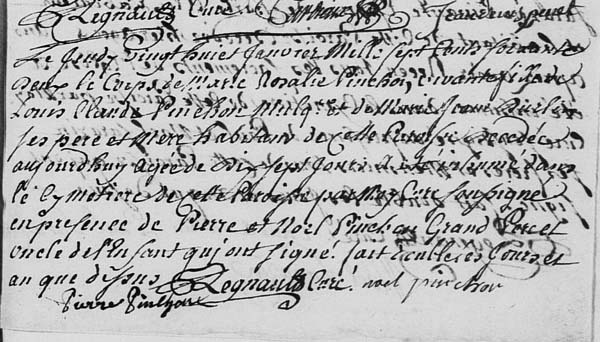 Regnault Curé
Le Jeudy vingt huit Janvier Mill: Sept Cents soixante
deux le Corps de Marie Rosalie Pinchon, vivante fille de
Louis Claude Pinchon et de Marie Jeanne
ses pere et Mere habitans de Cette Paroisse decedée
aujourdhuy agee de dix sept Jours a été inhumé dans
le Cymetiere de cette Paroisse par Moy Curé Soussigné
en presence de Pierre et Noël Pinchon Grand Pere et
oncle de l'Enfant qui ont signé. fait double ses Jours et
an que dessus Regnault Curé. noel pinchon
Pierre Pinchon